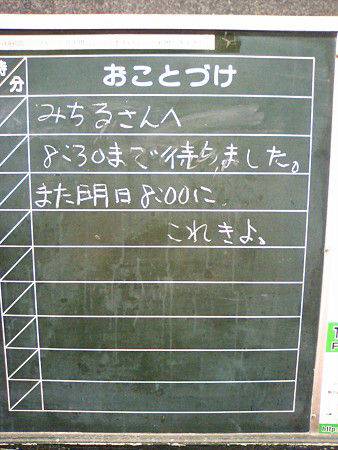 時
分
おことづけ
みちるさんへ
8:30まで待ちました。
また明日8:00に
これきよ。